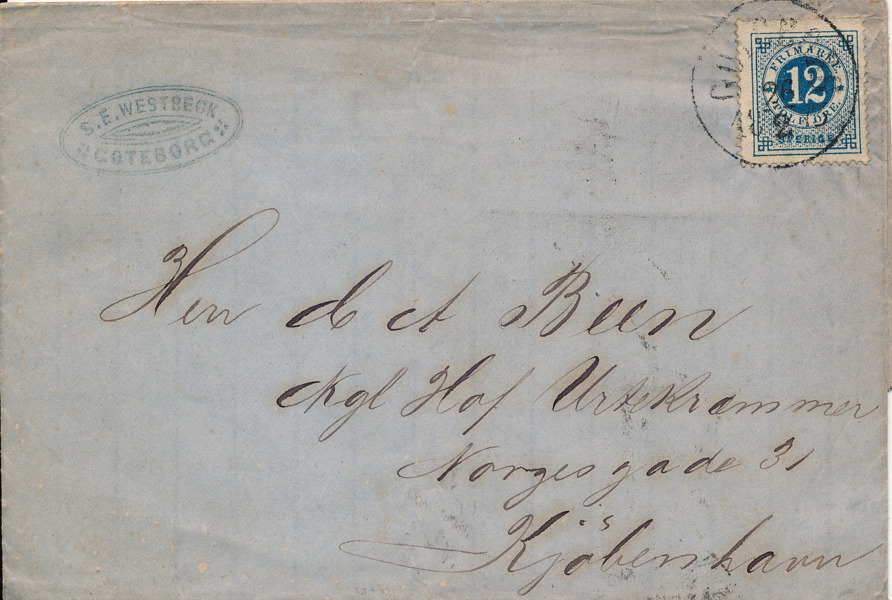 S. E. WESTBECK
GÖTEBORG
FRIMÄRKE
12
TOLF ÖRE
SVERIGE
Herr C A Been
Kgl Hof Urtekræmmer
Norgesgade 31
Kjöbenhavn